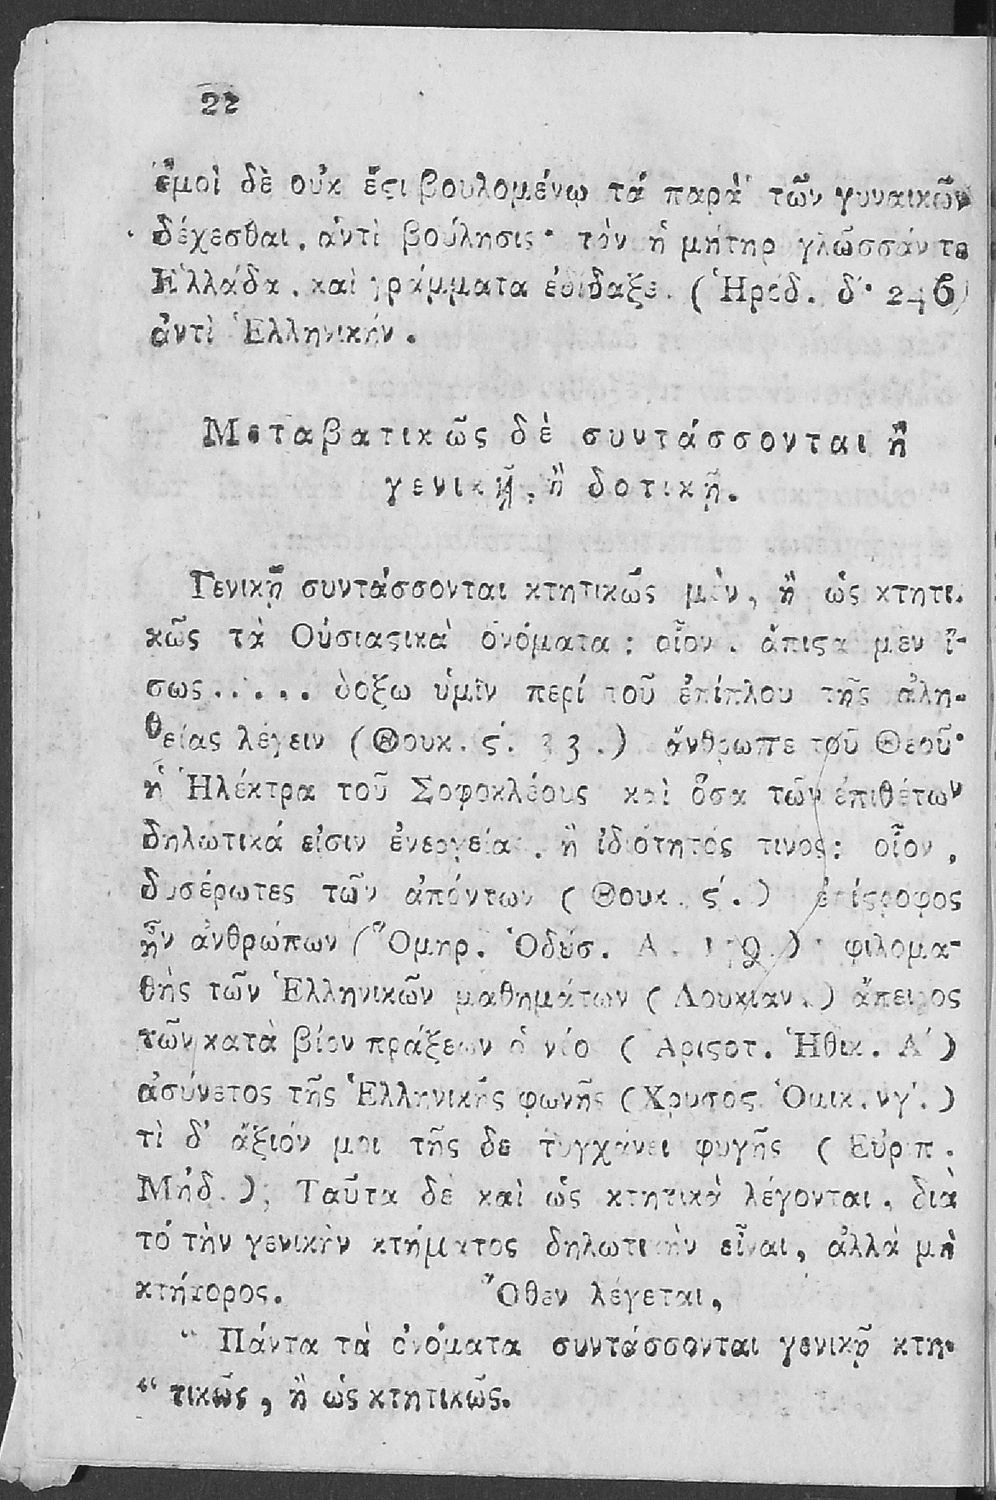 22
ἐμοὶ δὲ οὐκ ἔϛι βουλομένῳ τά παρὰ τῶν γυναικῶν
δέχεσθαι, ἀντὶ βούλησις· τὸν ἡ μήτηρ γλῶσσάν τε
Ἑλλάδα, καὶ γράμματα ἐδίδαξε. (Ἡρόδ. δ΄· 246)
ἀντὶ Ἑλληνικήν.
Μεταβατικῶς δὲ συντάσσονται ἢ
γενικῇ, ἢ δοτικῇ.
Γενικῇ συντάσσονται κτητικῶς μὲν, ἢ ὡς κτητι-
κῶς τὰ Οὐσιαϛικὰ ὀνόματα: οἷον. ἄπιϛα μεν ἴ-
σως..... δοξω ὑμῖν περί τοῦ ἐπίπλου τῆς ἀλη-
θείας λέγειν (Θουκ. ϛ΄. 33.) ἄνθρωπε τοῦ Θεοῦ·
ἡ Ἠλέκτρα τοῦ Σοφοκλέους καὶ ὅσα τῶν ἐπιθέτων
δηλωτικά εἰσιν ἐνεργείας, ἢ ἰδιότητός τινος: οἷον,
δυσέρωτες τῶν ἀπόντων (Θουκ. ϛ΄.) ἐπίϛροφος
ἦν ἀνθρώπων (Ὅμηρ. Ὀδύσ. Α. ) φιλομα-
θὴς τῶν Ἑλληνικῶν μαθημάτων (Λουκιαν.) ἄπειρος
τῶν κατὰ βίον πράξεων ὁ νέο (Αριϛοτ. Ἠθικ. Α΄)
ἀσύνετος τῆς Ἑλληνικῆς φωνῆς (Χρυσος. Ὁμικ. νγ΄.)
τὶ δ' ἄξιόν μοι τῆς δε τυγχάνει φυγῆς (Εὐριπ.
Μήδ.); Ταῦτα δὲ καὶ ὡς κτητικὰ λέγονται, διὰ
τό τὴν γενικὴν κτήματος δηλωτικὴν εἶναι, ἀλλὰ μὴ
κτήτορος. Ὅθεν λέγεται,
“ Πάντα τὰ ὀνόματα συντάσσονται γενικῇ κτη-
“ τικῶς, ἢ ὡς κτητικῶς.